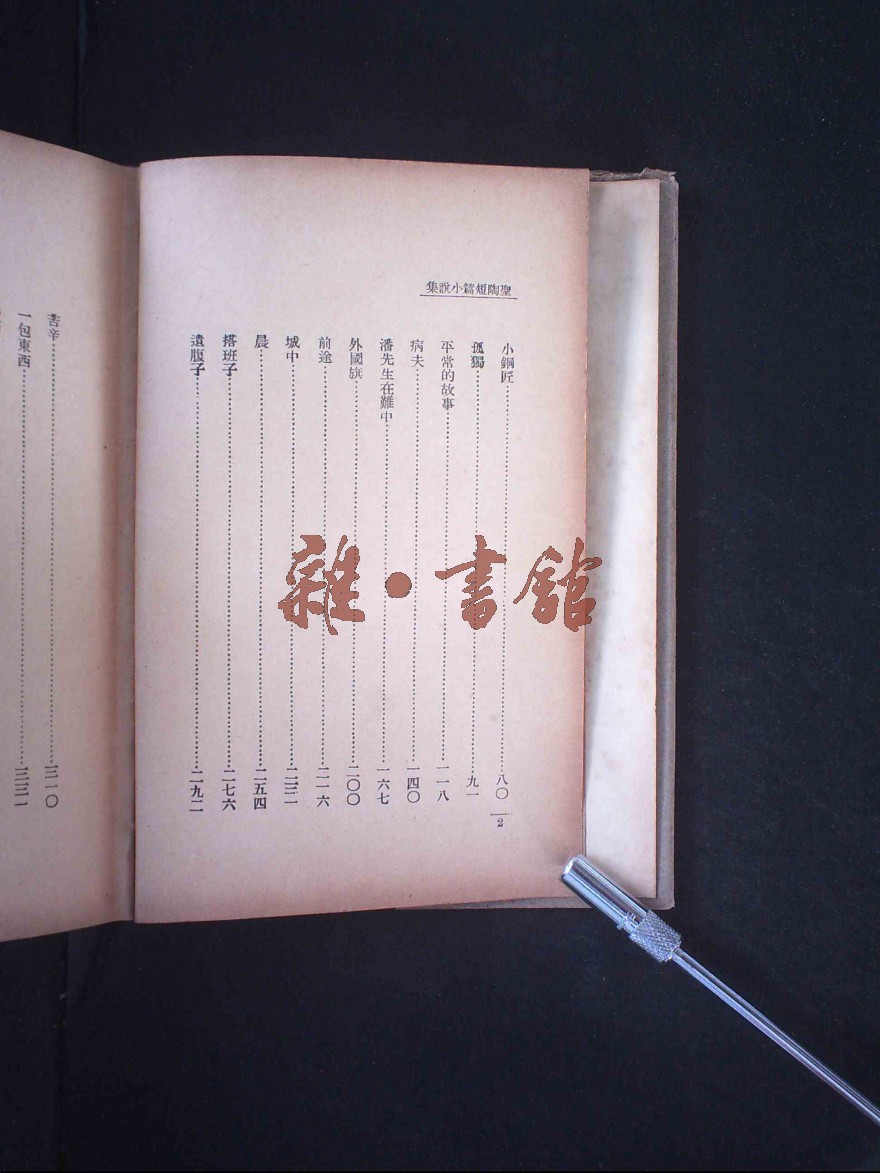 聖陶短篇小說集
小銅匠……八〇
孤獨……九一
平常的故事……一一八
病夫……一四〇
潘先生在難中……一六七
外國旗……二〇〇
前途……二一六
城中……二三一
晨……二五四
搭班子……二七六
遺腹子……二九二
2
苦辛……三一〇
一包東西……三三一
雜·書館